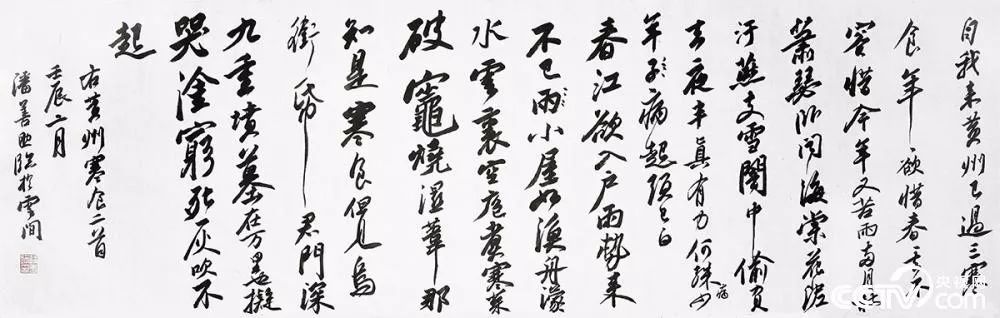 自我来黄州已過三寒
食年〻欲惜春〻去不
容惜今年又苦雨两月秋
蕭瑟卧聞海棠花泥
汙燕支雪闇中偷負
去夜半真有力何殊少
病
年子病起頭已白
春江欲入户雨勢来
不已雨小屋如漁舟濛
水雲裏空庖煮寒菜
破竈燒濕葦那
知是寒食但見烏
銜帋君門深
九重墳墓在万里也擬
哭塗窮死灰吹不
起
右黄州寒食二首
壬辰二月
潘善助臨於雲間
央视网
CCTV.com